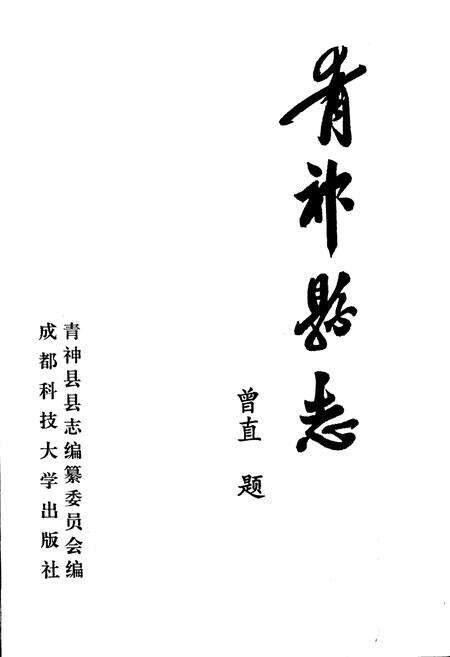 青神縣志
曾直 题
青神县县志编纂委员会编
成都科技大学出版社